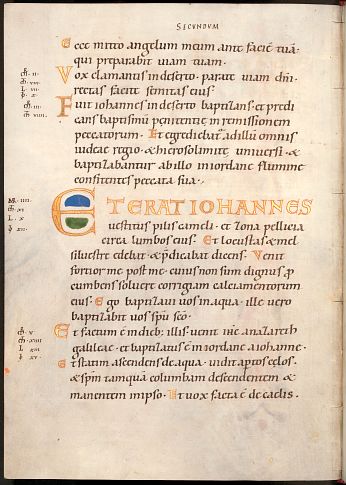 SECUNDUM
Ecce mitto angelum meum ante facie tua
qui preparabit uiam tuam.
Vox clamantis in deserto. parate uiam dni
rectas facite semitas eius.
Fuit iohannes in deserto baptizans et predi
cans baptismu penitentie in remissionem
peccatorum. Et egrediebat ad illum omnis
iudeae regio & hierosolimite uniuersi &
baptizabantur ab illo in iordane flumine
confitentes peccata sua.
ET ERAT IOHANNES
uestitus pilis cameli. et zona pellicia
circa lumbos eius. Et locustas & mel
siluestre edebat & pdicabat dicens. Venit
fortior me post me. cuius non sum dignus p
cumbens soluere corrigiam calciamentorum
eius. Ego baptizaui uos in aqua. ille uero
baptizabit uos spu sco.
Et factum e in dieb; illis. uenit ihc a nazareth
galileae. et baptizatus e in iordane a iohanne.
Et statim ascendens de aqua. uidit aptos celos.
& spm tamqua columbam descendentem &
manentem in ipso. Et uox facta e de caelis.